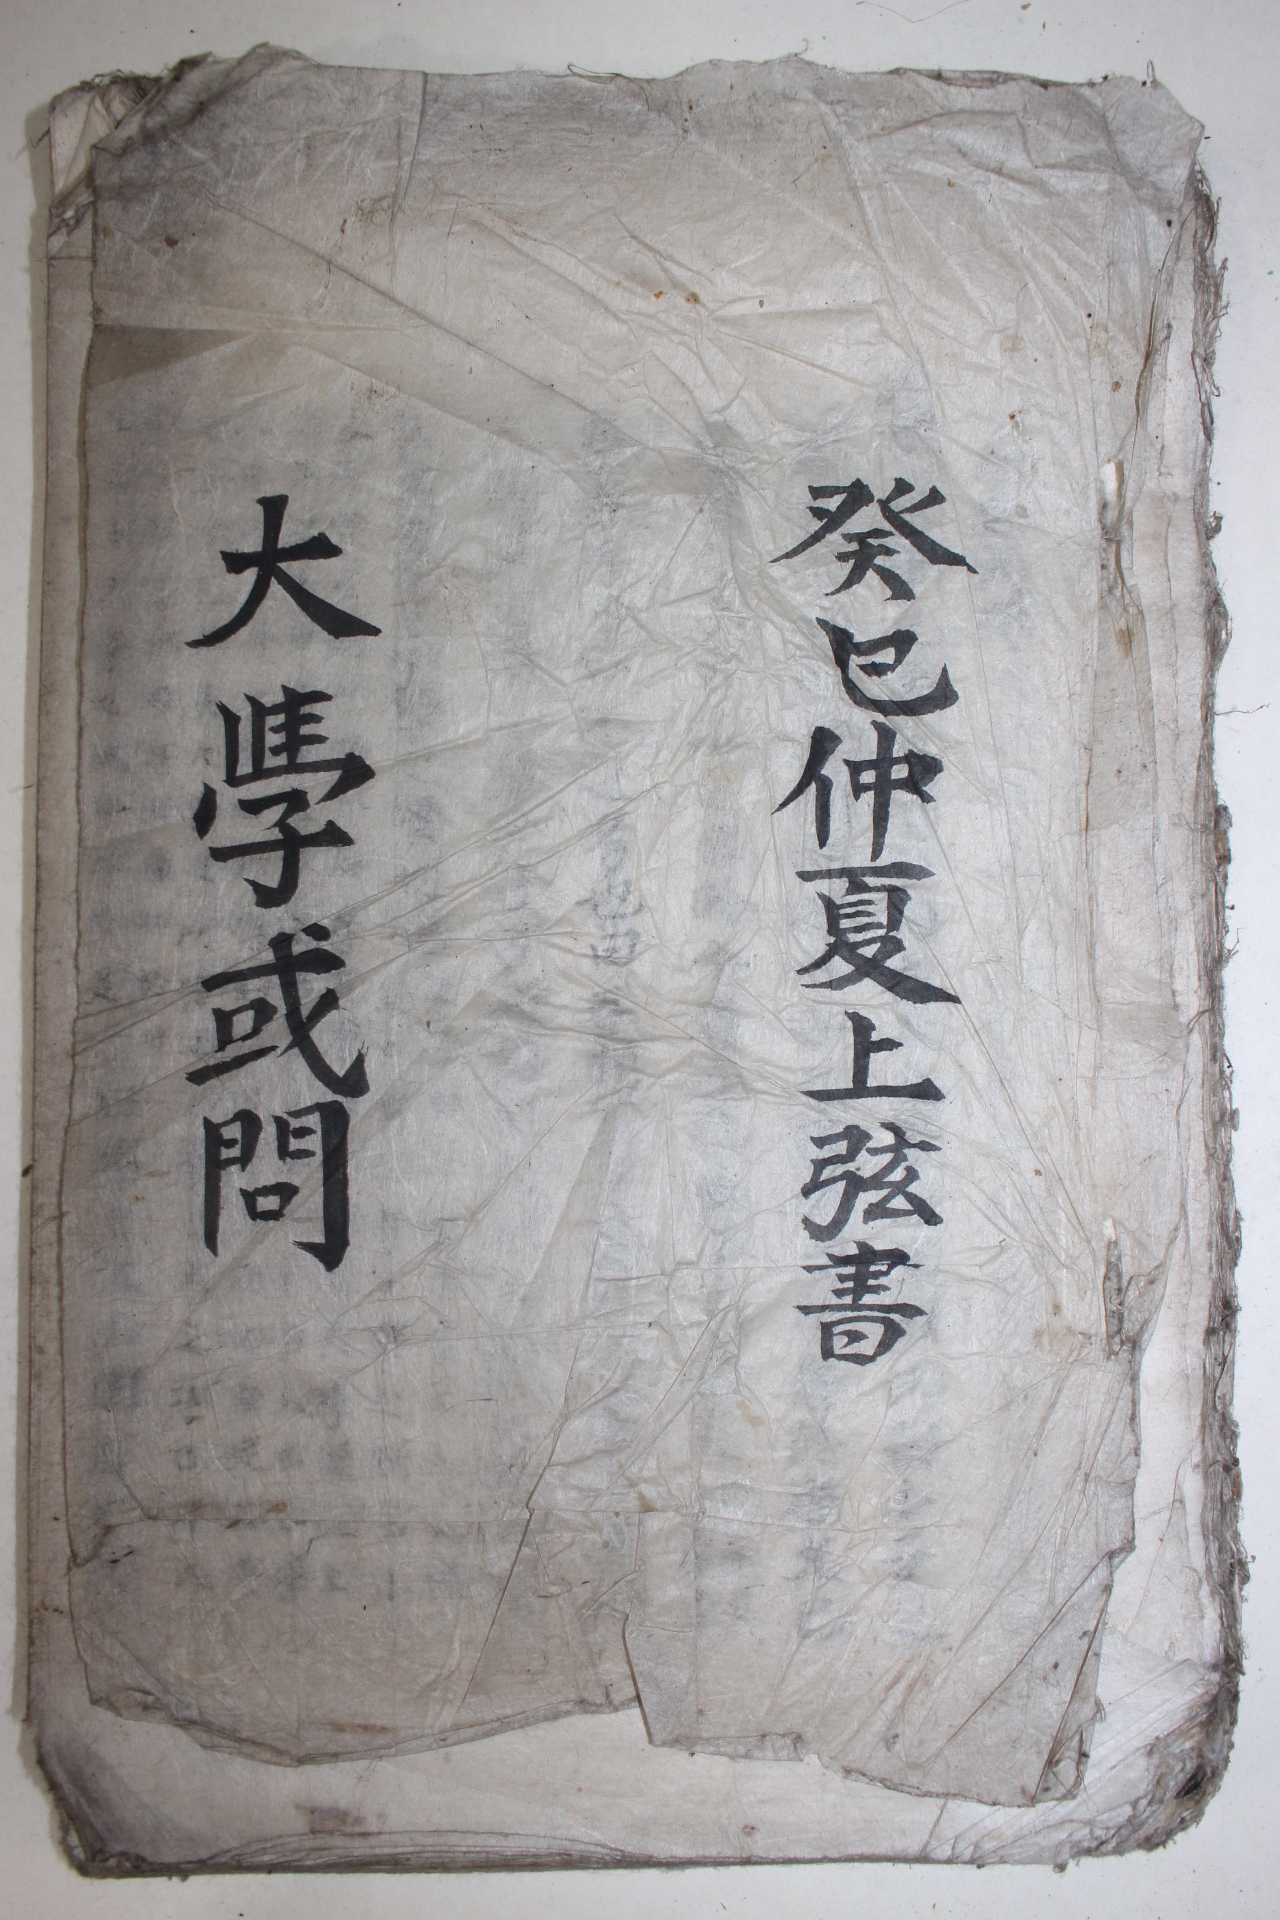 癸巳仲夏上弦書
大學或問